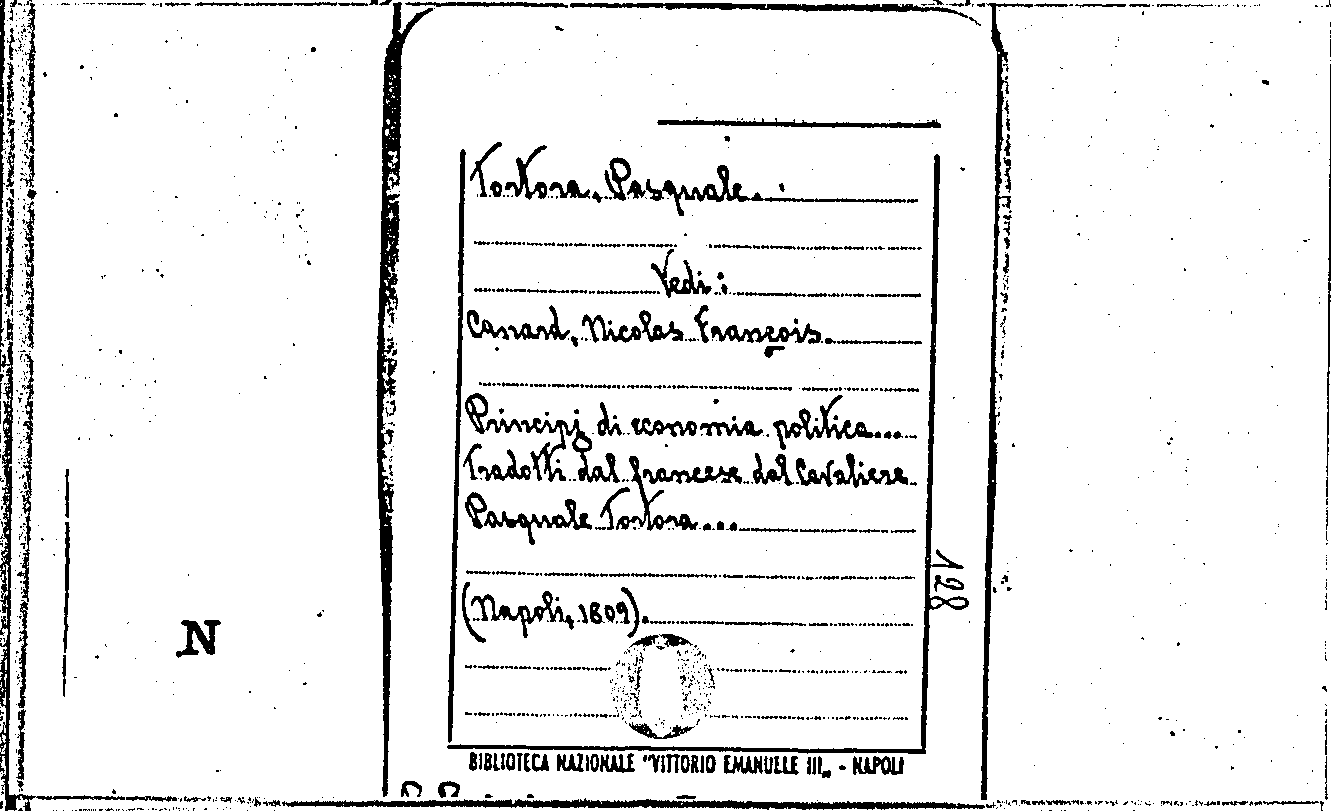 Tortora, Pasquale.
Vedi:
Canard, Nicolas François.
Principj di economia politica...
Tradotti dal francese dal Cavaliere
Pasquale Tortora...
(Napoli, 1809).
128
N
BIBLIOTECA NAZIONALE "VITTORIO EMANUELE III„ - NAPOLI